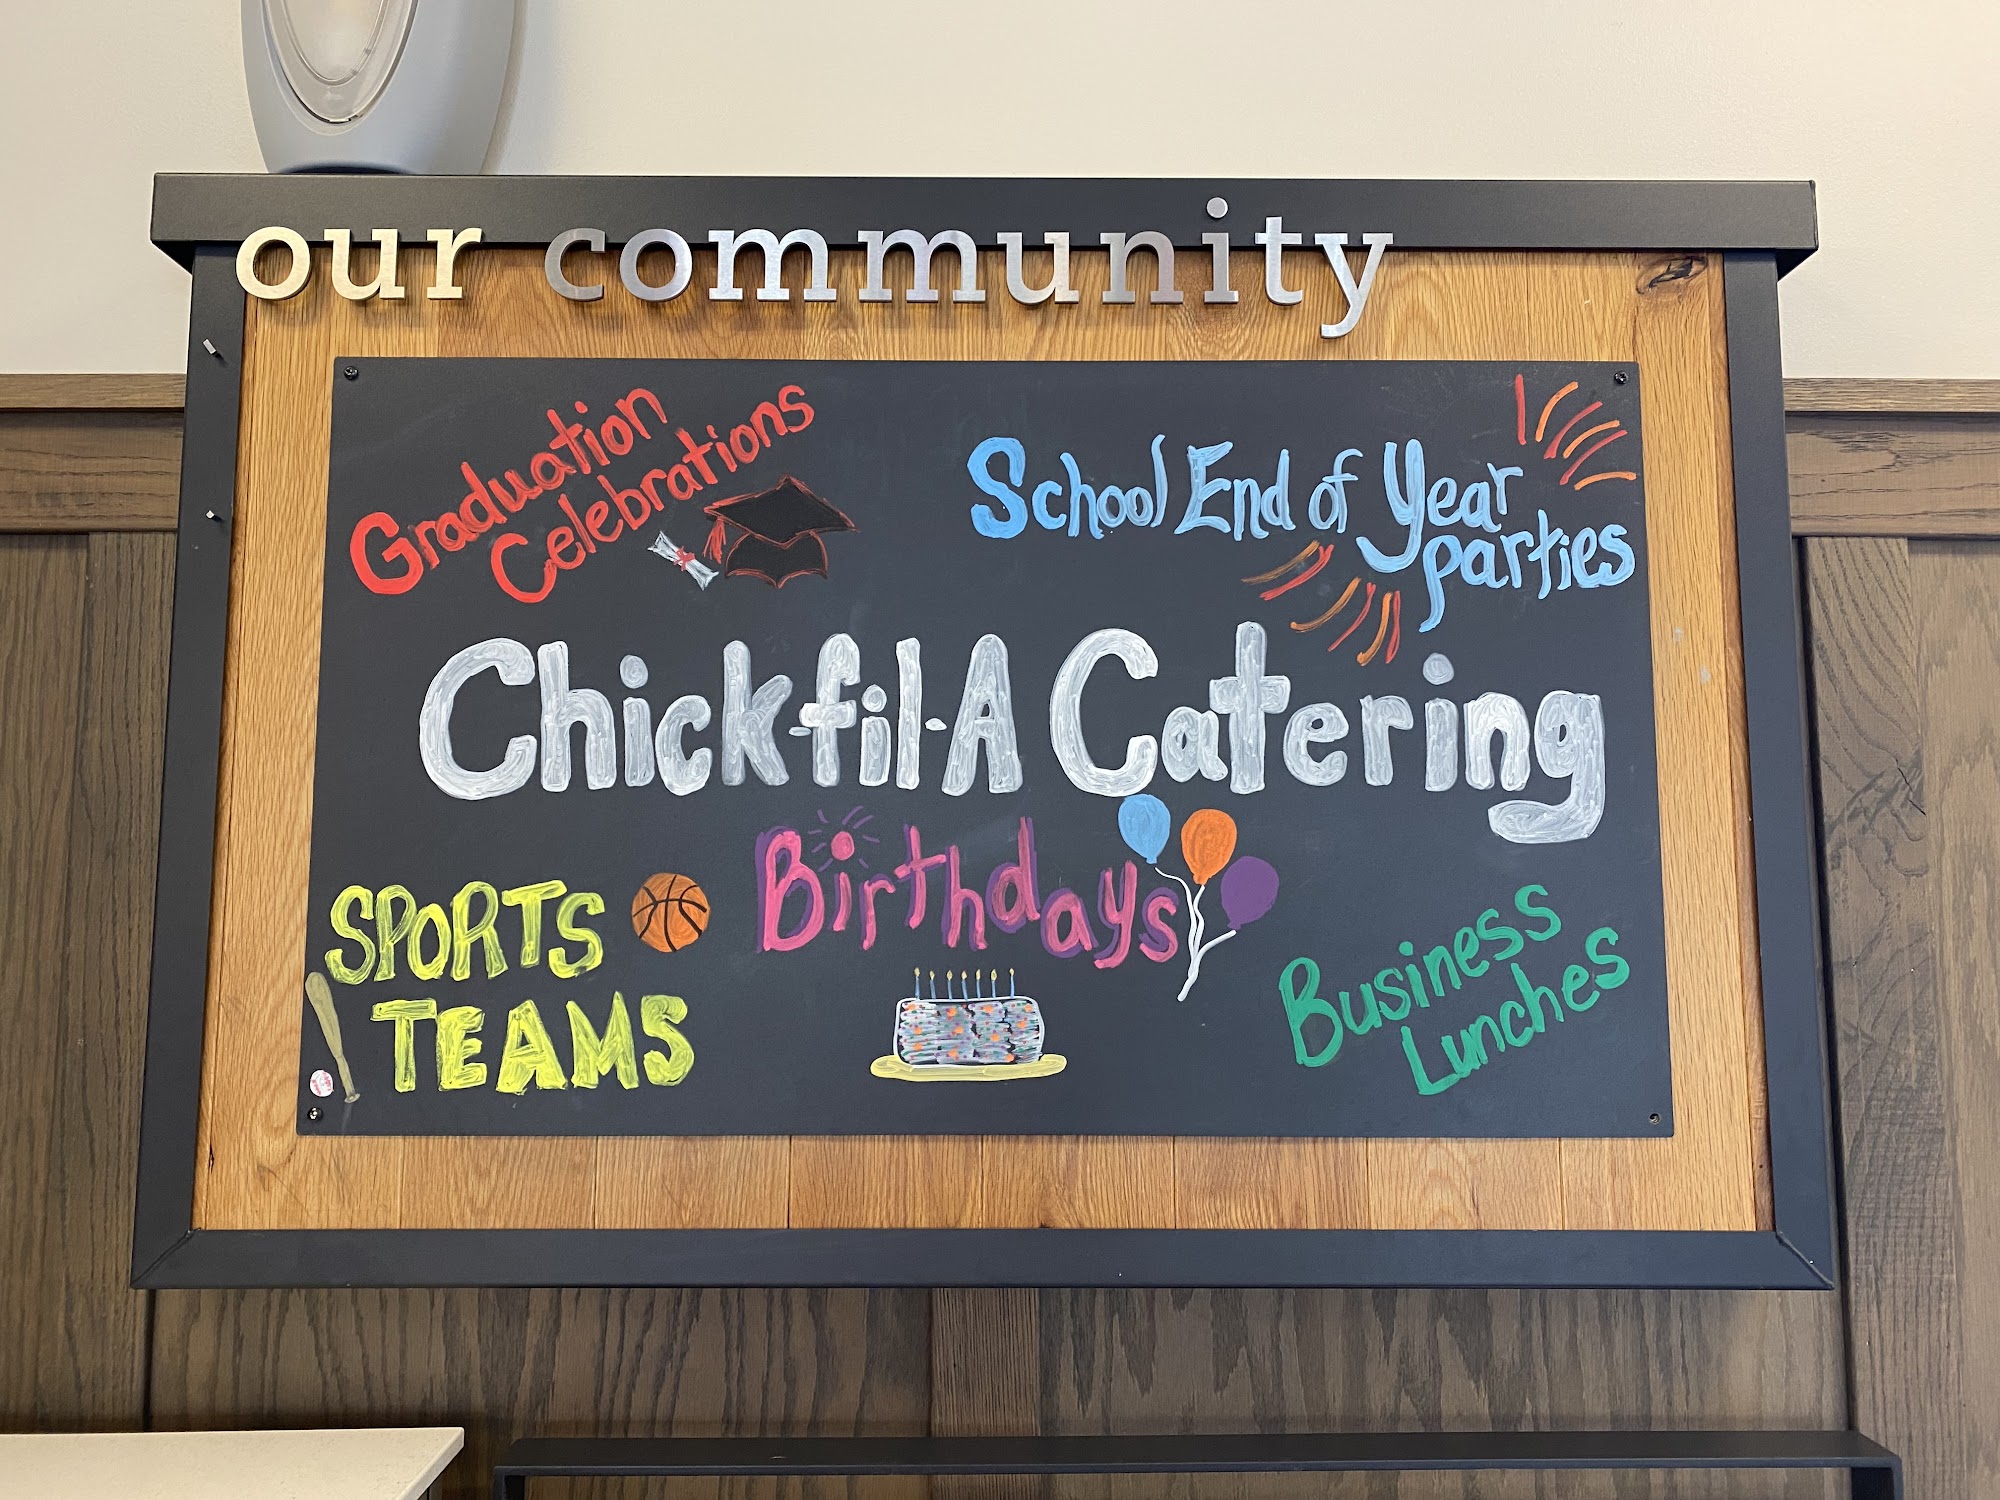 our community
Graduation
Celebrations
School End of Year
parties
Chick-fil-A Catering
Birthdays
SPORTS
TEAMS
Business
Lunches